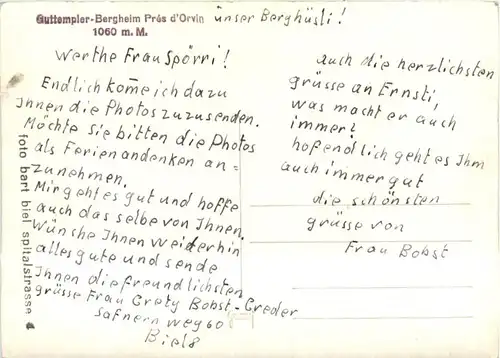 Guttempler-Bergheim Prés d'Orvin unser Berghüsli!
1060 m. M.
Werthe Frau Spörri!
Endlich kome ich dazu
Ihnen die Photos zuzusenden.
Möchte sie bitten die Photos
als Ferienandenken an=
zunehmen.
Mir geht es gut und hoffe
auch das selbe von Ihnen.
Wünshe Ihnen weiderhin
alles gute und sende
Ihnen die freundlichsten
grüsse Frau Grety Bobst-Greder
Safnern weg 60
Biel 8
auch die herzlichsten
grüsse an Ernsti,
was macht er auch
immer?
hofendlich geht es Ihm
auch immer gut
die schönsten
grüsse von
Frau Bobst
foto bart biel spitalstrasse